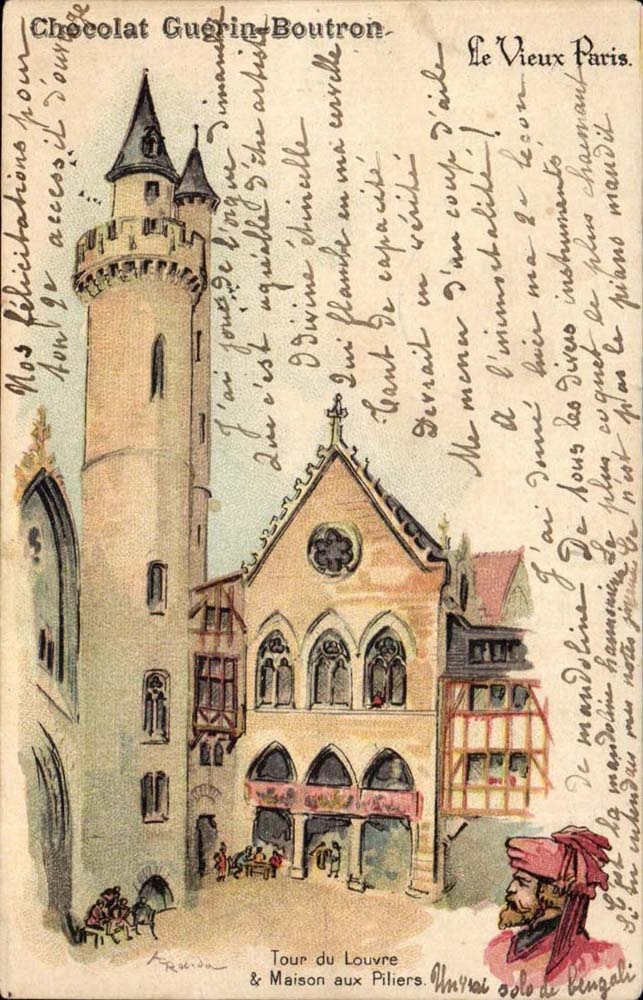 Chocolat Guérin-Boutron
Le Vieux Paris.
Nos félicitations pour
ton 2e accessit d'ouvrage
J'ai joué de l'orgue dimanche
Que c'est agréable d'être artiste
O divine étincelle
Qui flambe en ma cervelle
Tant de capacité
Devrait en vérité
Me mener d'un coup d'aile
A l'immortalité!
J'ai donné hier ma 2e leçon
de mandoline De tous les divers instruments
C'est la mandoline le plus coquet le plus charmant
Si tu entendais mes notes c'est pas le piano maudit
Un vrai solo de bengali
A. Robida
Tour du Louvre
& Maison aux Piliers.